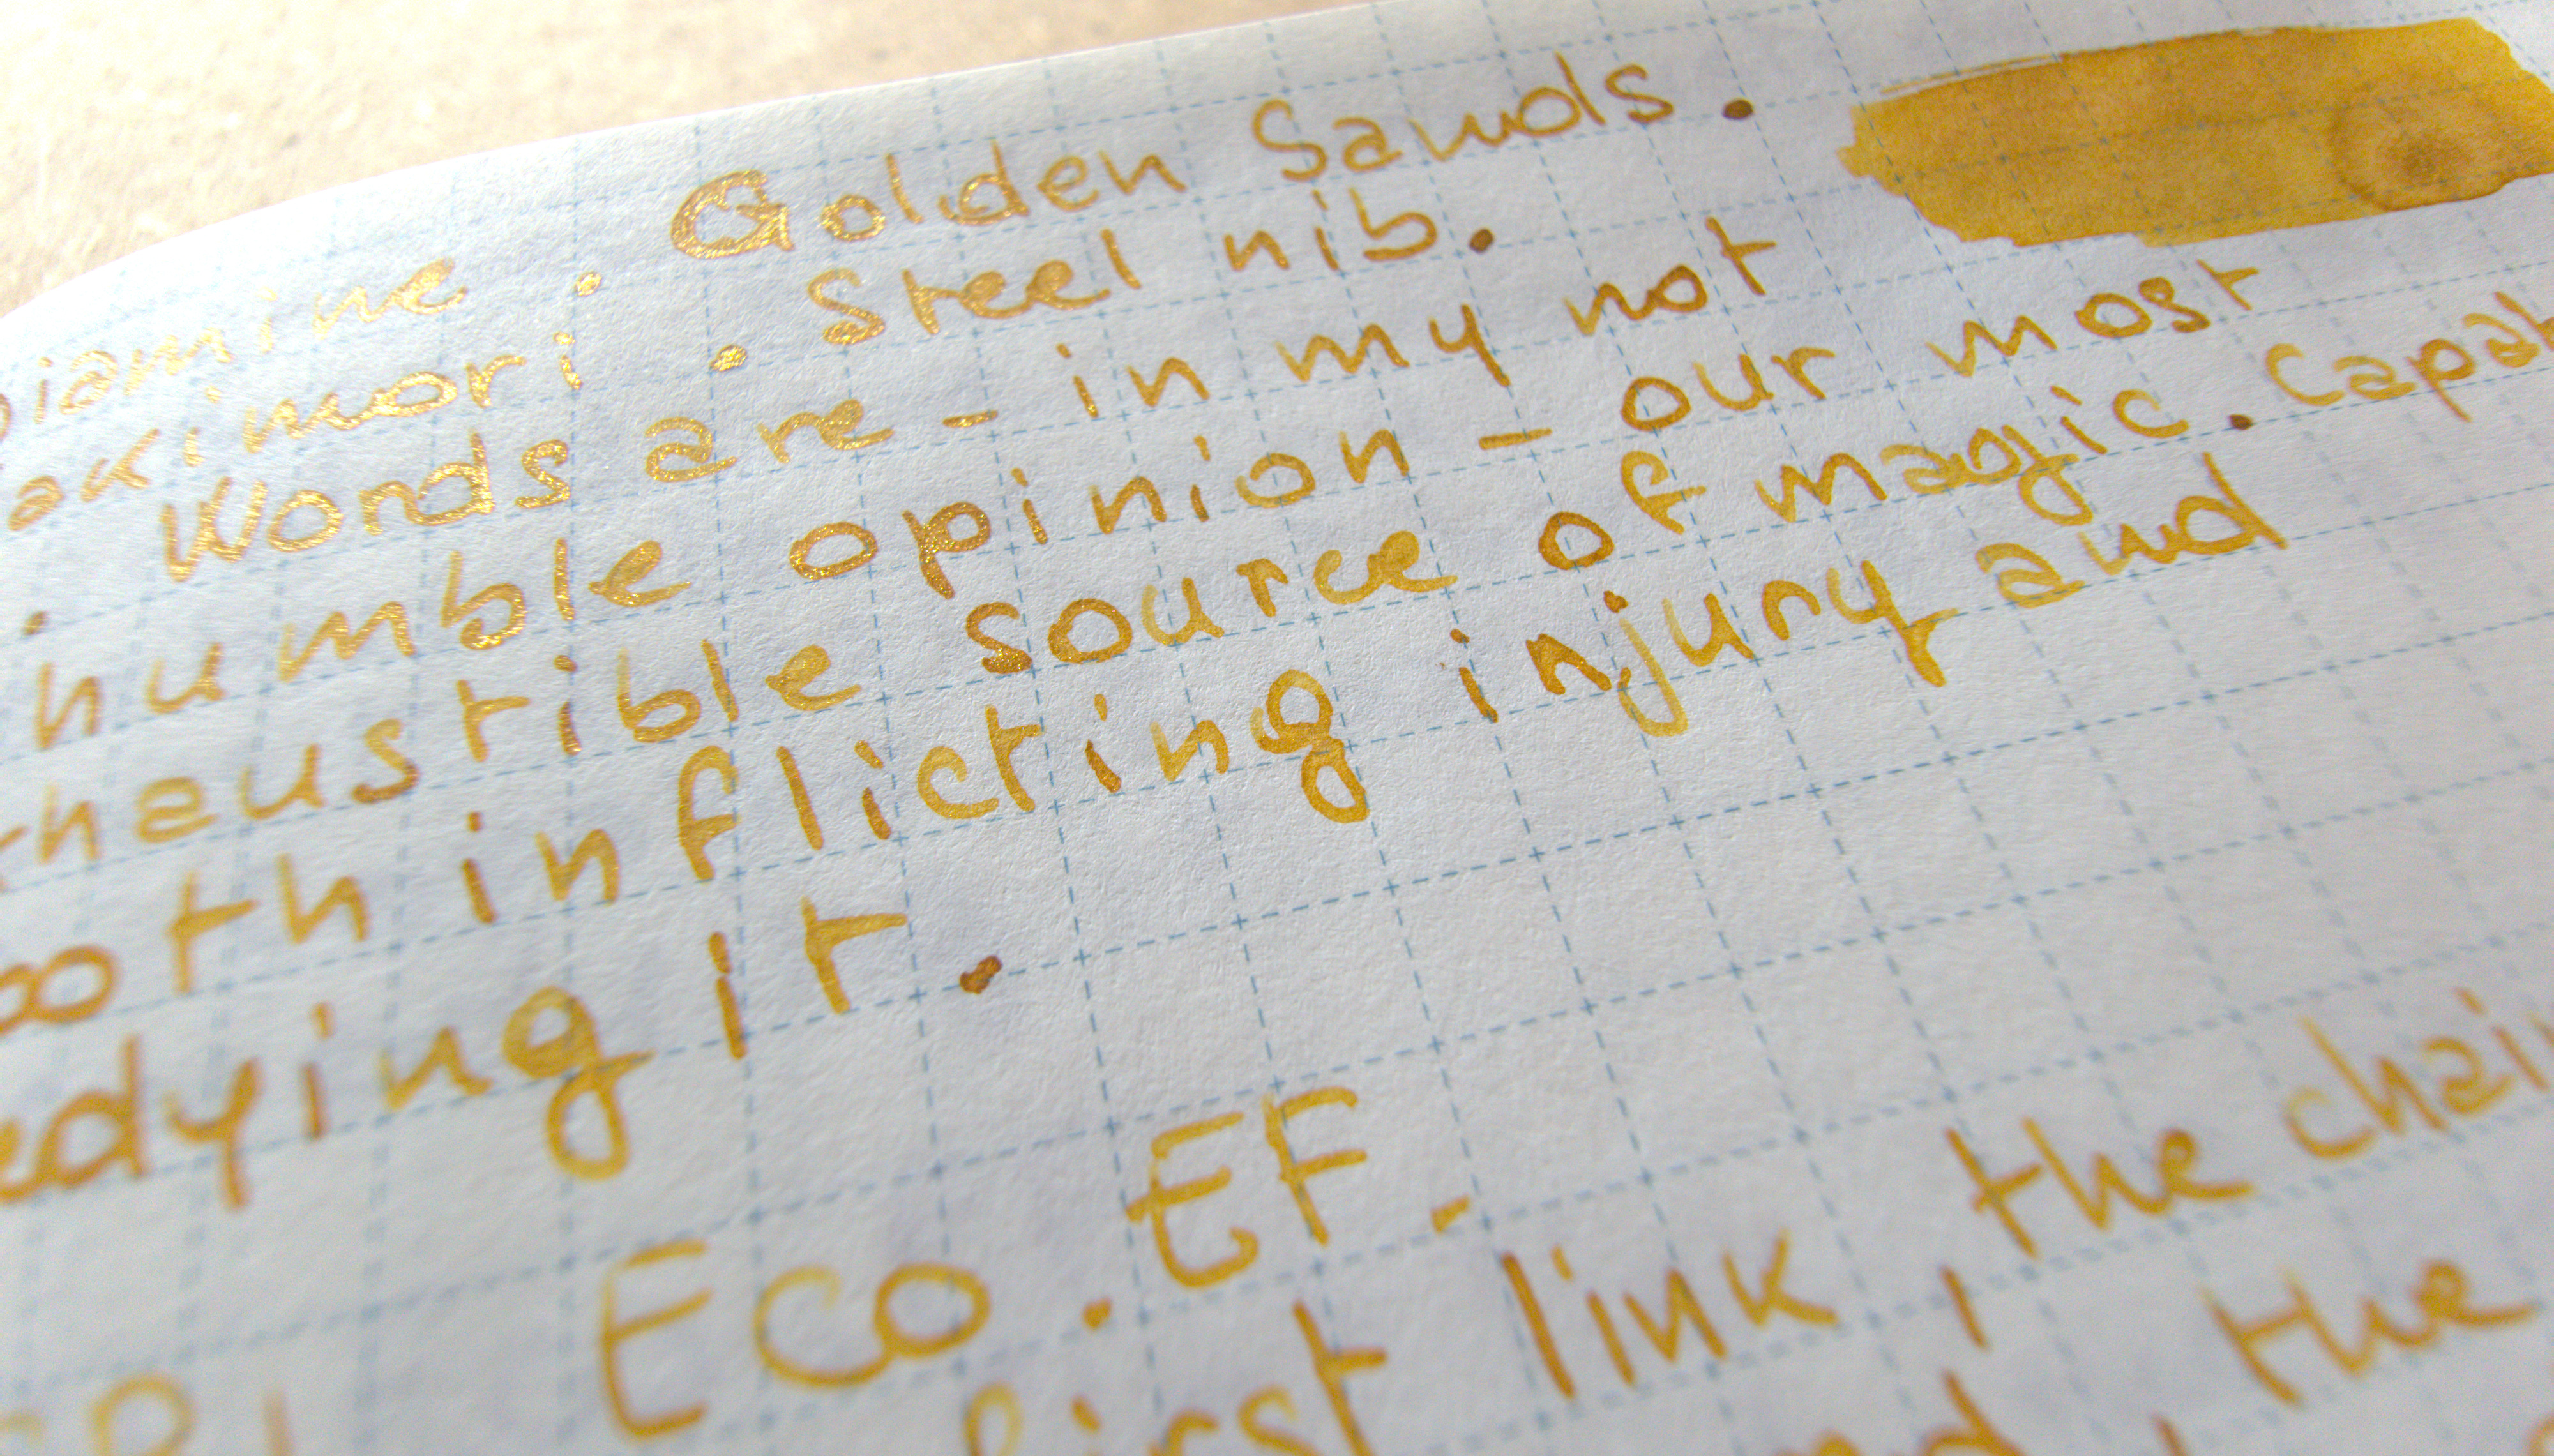 Diamine . Golden Sands .
akimori . Steel nib .
. Words are - in my not
humble opinion - our most
haustible source of magic . Capab
both inflicting injury and
edying it .
Eco . EF -
first link , the chain
, the